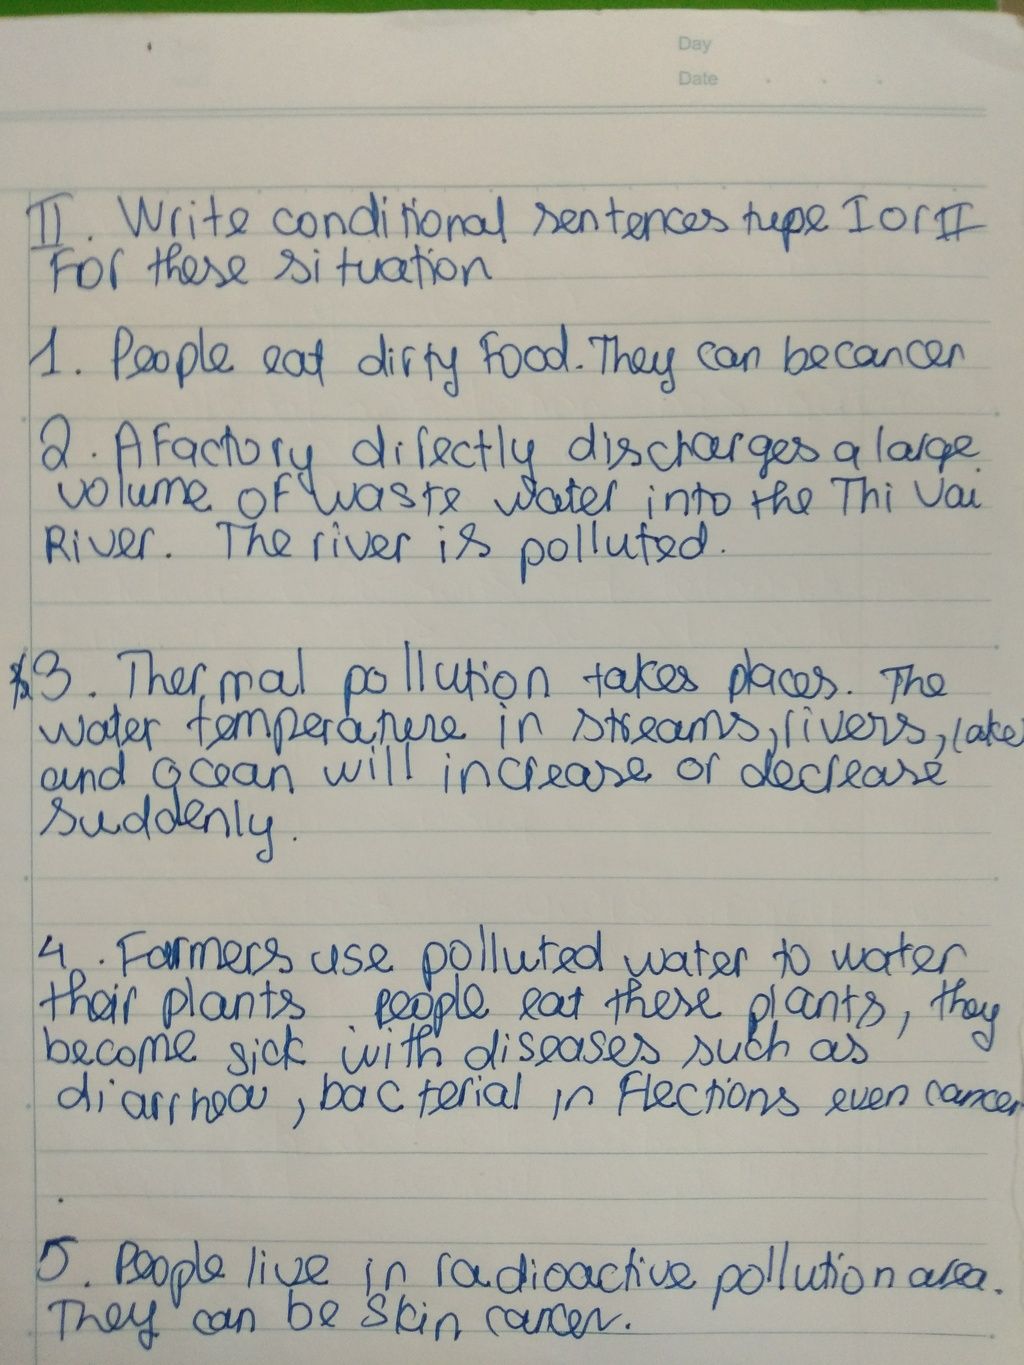 Day
Date
II. Write conditional sentences tupe I or II
For these situation
1. People eat dirty Food. They can be cancer
2. A Factory directly discharges a large
volume of waste water into the Thi Vai
River. The river is polluted.
3. Thermal pollution takes places. The
water temperature in streams, rivers, lake
and ocean will increase or decrease
suddenly.
4. Farmers use polluted water to water
their plants people eat these plants, they
become sick with diseases such as
diarrhea, bacterial in flections even cancer
5. People live in radioactive pollution area.
They can be skin cancer.